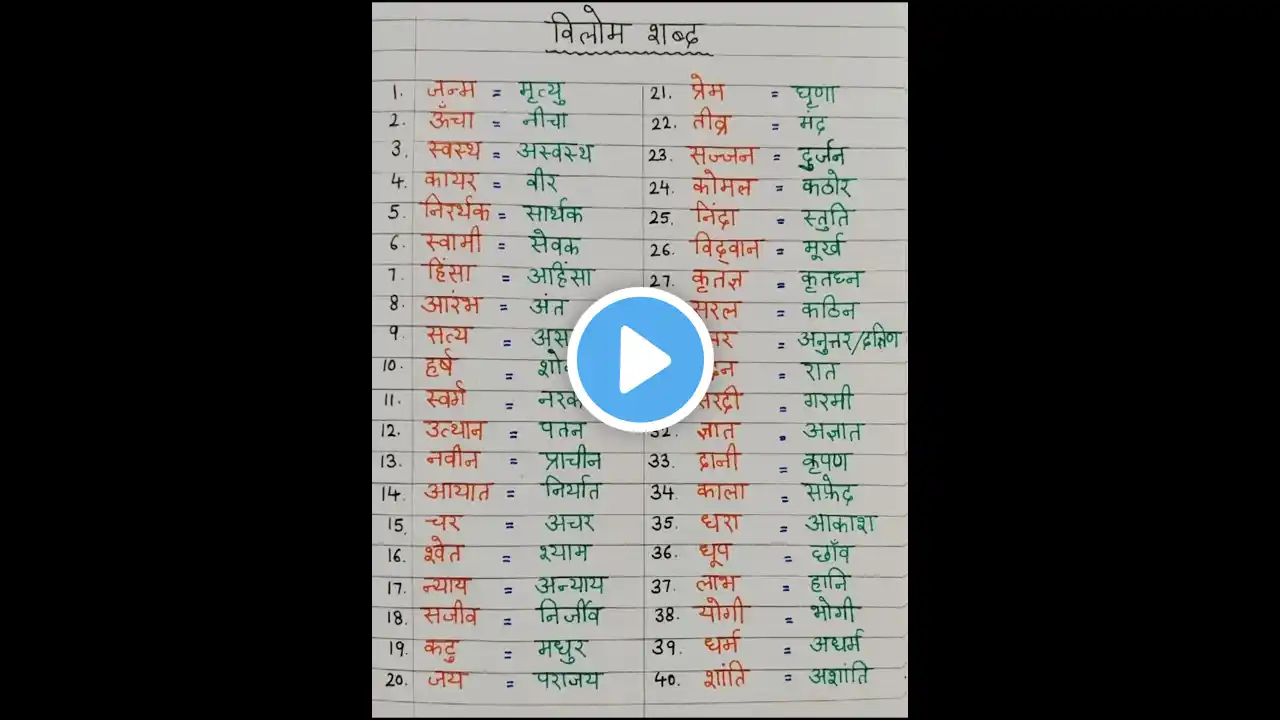 विलोम शब्द
1. जन्म = मृत्यु
2. ऊँचा = नीचा
3. स्वस्थ = अस्वस्थ
4. कायर = वीर
5. निरर्थक = सार्थक
6. स्वामी = सेवक
7. हिंसा = अहिंसा
8. आरंभ = अंत
9. सत्य =
10. हर्ष =
11. स्वर्ग = नरक
12. उत्थान = पतन
13. नवीन = प्राचीन
14. आयात = निर्यात
15. चर = अचर
16. श्वेत = श्याम
17. न्याय = अन्याय
18. सजीव = निर्जीव
19. कटु = मधुर
20. जय = पराजय
21. प्रेम = घृणा
22. तीव्र = मंद
23. सज्जन = दुर्जन
24. कोमल = कठोर
25. निंदा = स्तुति
26. विद्‌वान = मूर्ख
27. कृतज्ञ = कृतघ्न
सरल = कठिन
= अनुत्तर/दक्षिण
= रात
सरदी = गरमी
32. ज्ञात = अज्ञात
33. दानी = कृपण
34. काला = सफ़ेद
35. धरा = आकाश
36. धूप = छाँव
37. लाभ = हानि
38. योगी = भोगी
39. धर्म = अधर्म
40. शांति = अशांति